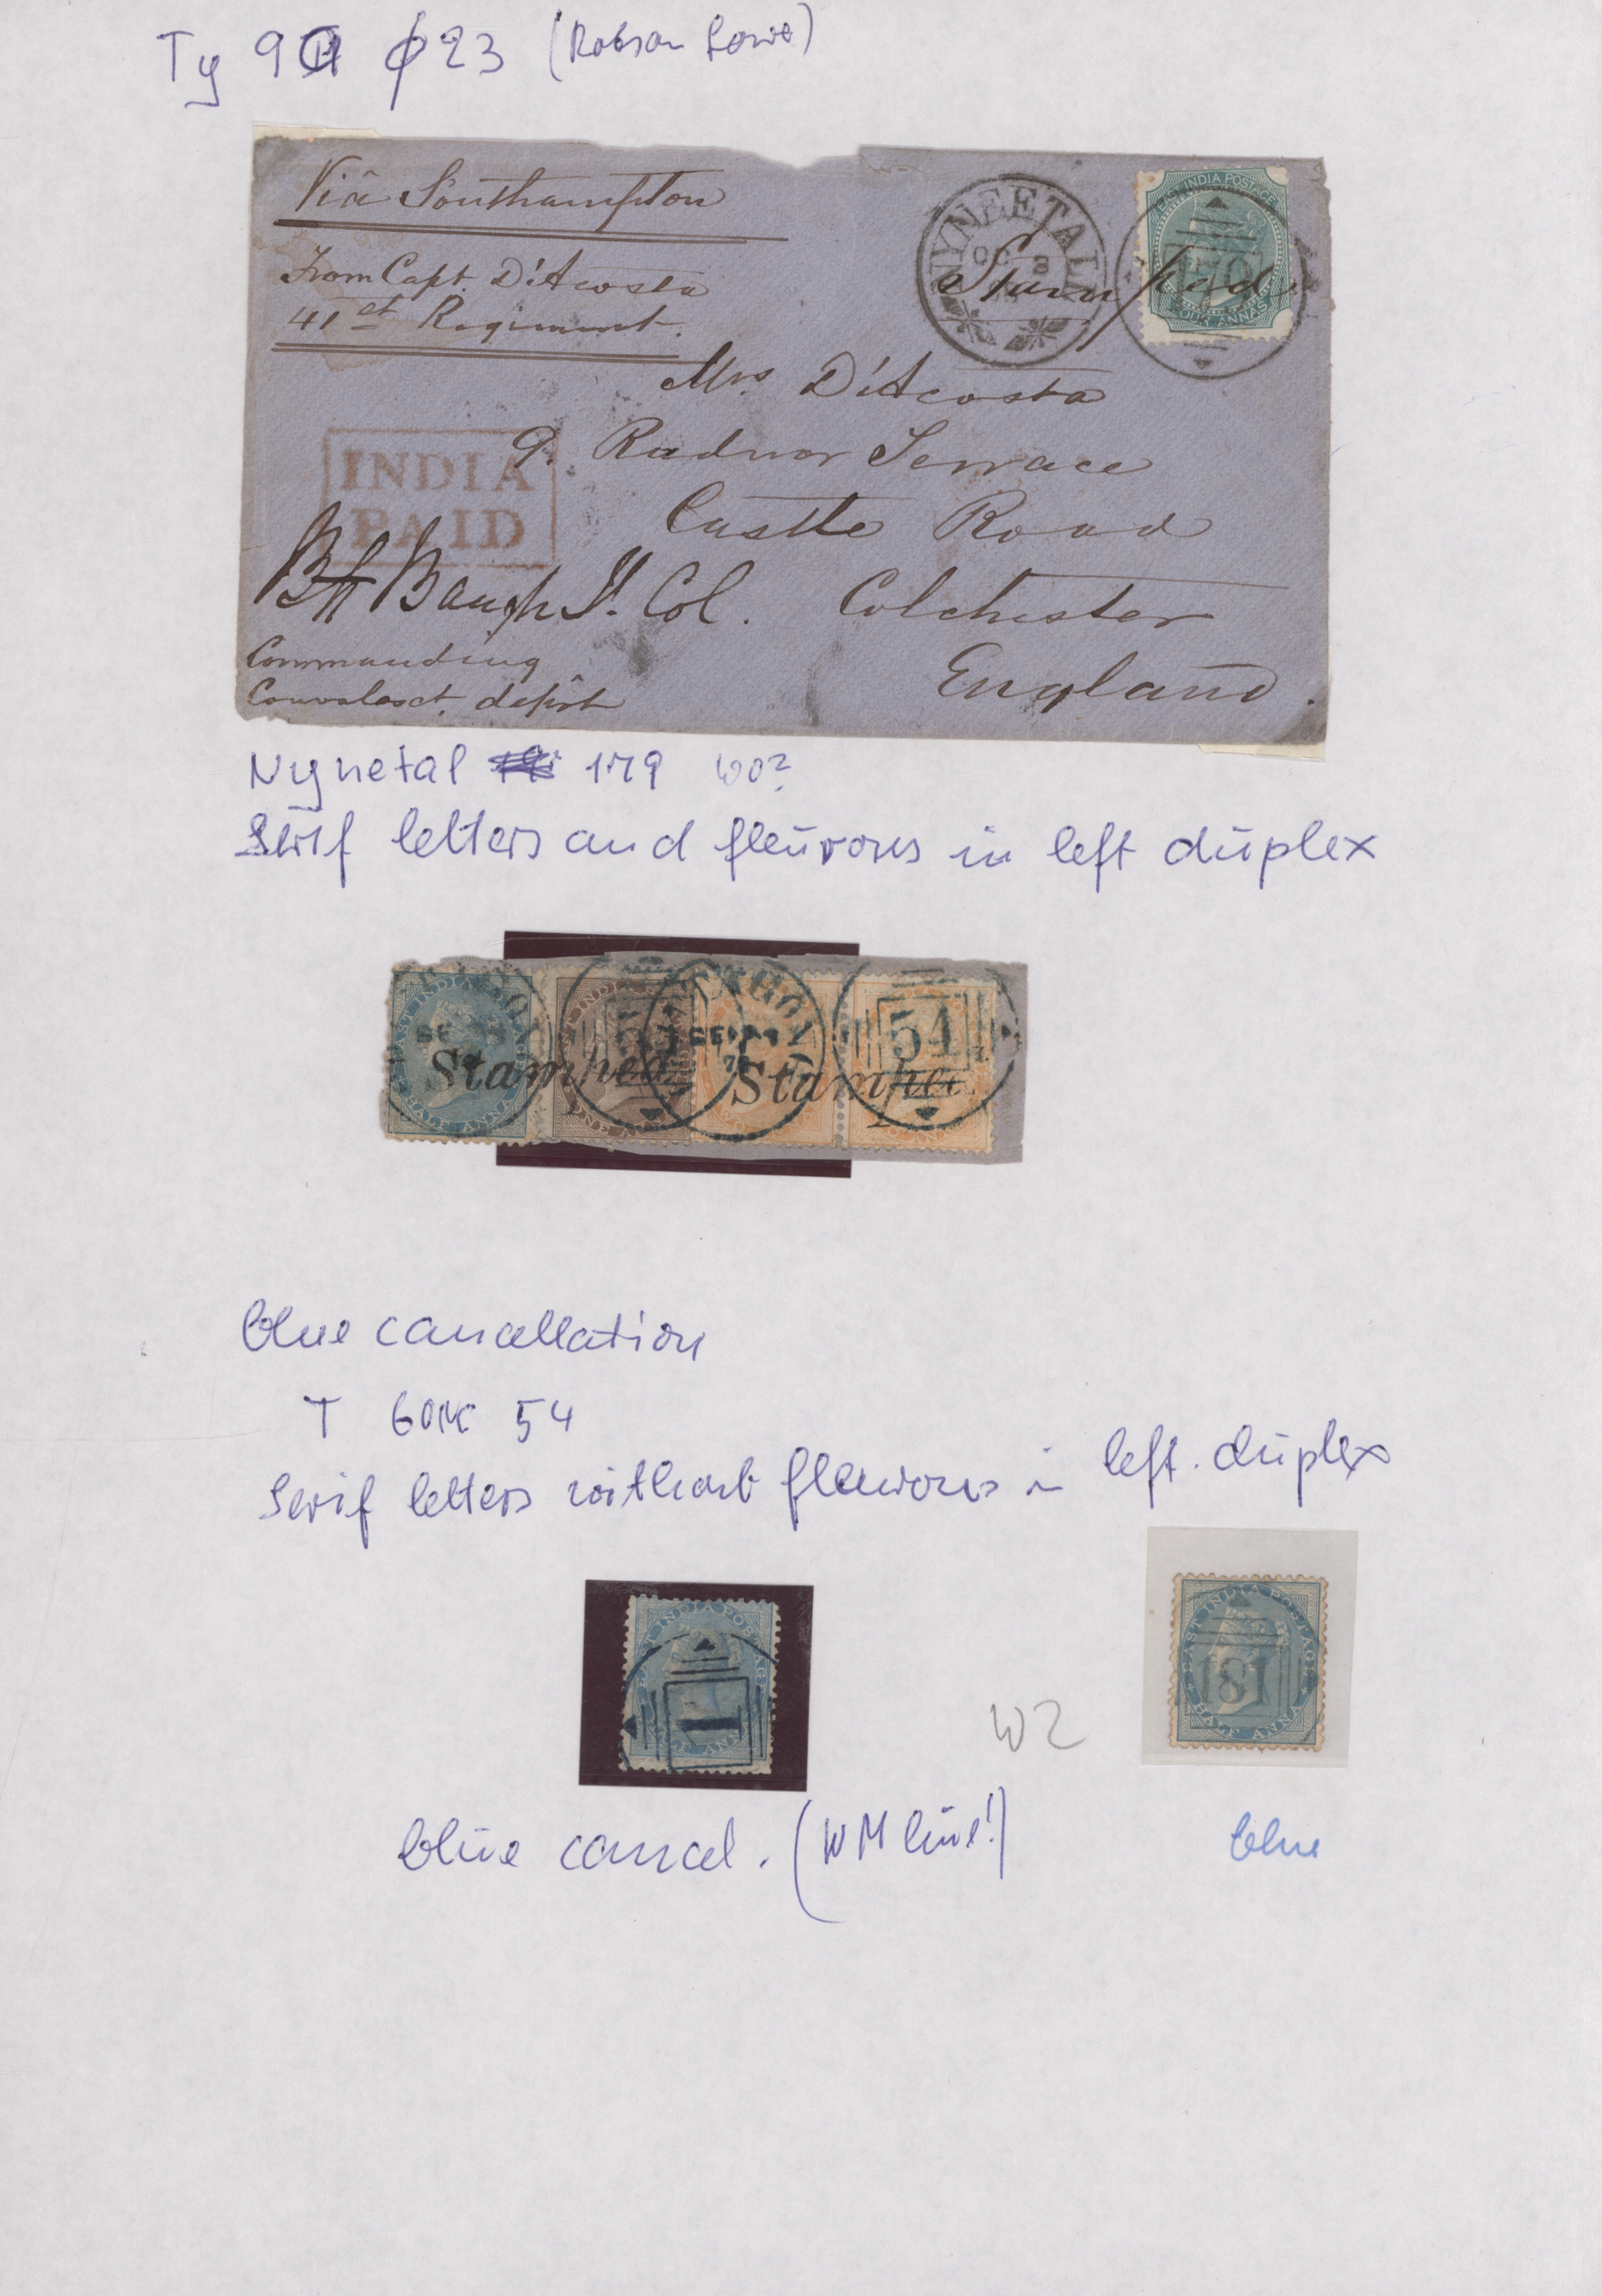 Ty 9 ¢23 (Robson Lowe)
Viâ Southampton
From Capt. D'Acosta
41st Regiment.
NYNEETAL
OC 3
Stamped
EAST INDIA POSTAGE
FOUR ANNAS
179
Mrs D'Acosta
9. Radnor Terrace
INDIA
PAID
Castle Road
Baugh Lt. Col.
Colchester
Commanding
England.
Convalesct. depôt
Nynetal 179 wo?
Serif letters and fleurons in left duplex
EAST INDIA POSTAGE
HALF ANNA
ONE ANNA
SE
Stamped
54
Stamped
54
blue cancellation
T 54
Serif letters without fleurons in left duplex
EAST INDIA POSTAGE
1
EAST INDIA POSTAGE
HALF ANNA
181
W2
blue cancel. (WM line!)
blue